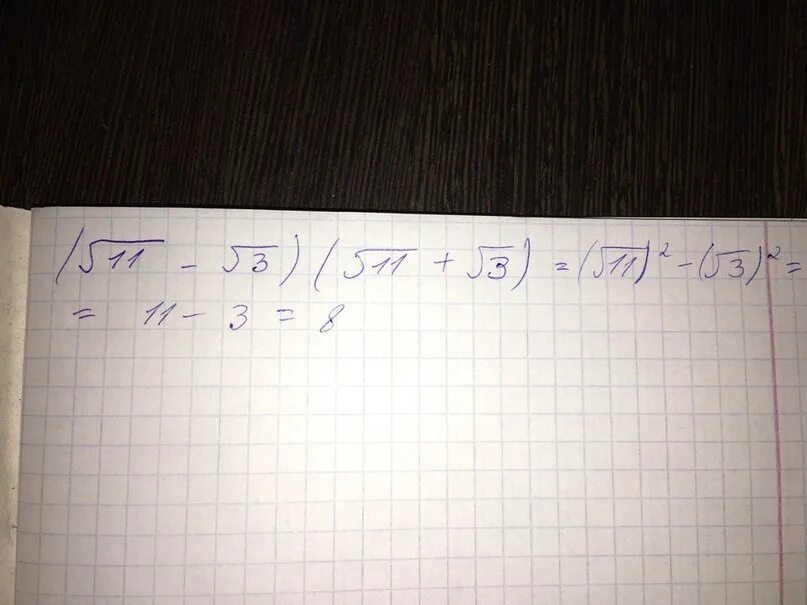 (√11 - √3) (√11 + √3) = (√11)² - (√3)² =
= 11 - 3 = 8